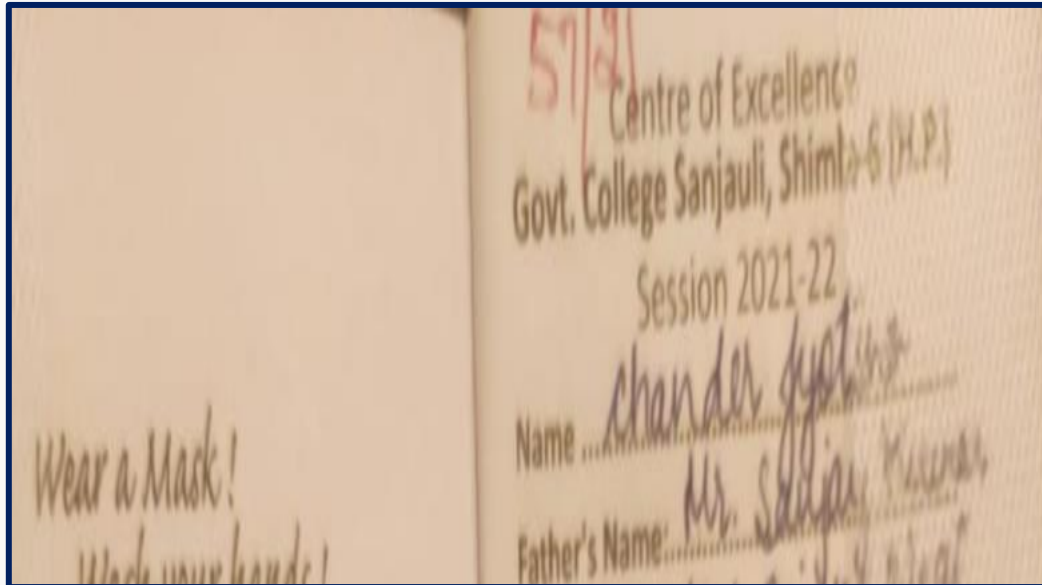 Wear a Mask!
Wash your hands!
57/21
Centre of Excellence
Govt. College Sanjauli, Shimla-6 (H.P.)
Session 2021-22
Name chander
Father's Name: Mr. Sanjay Kumar